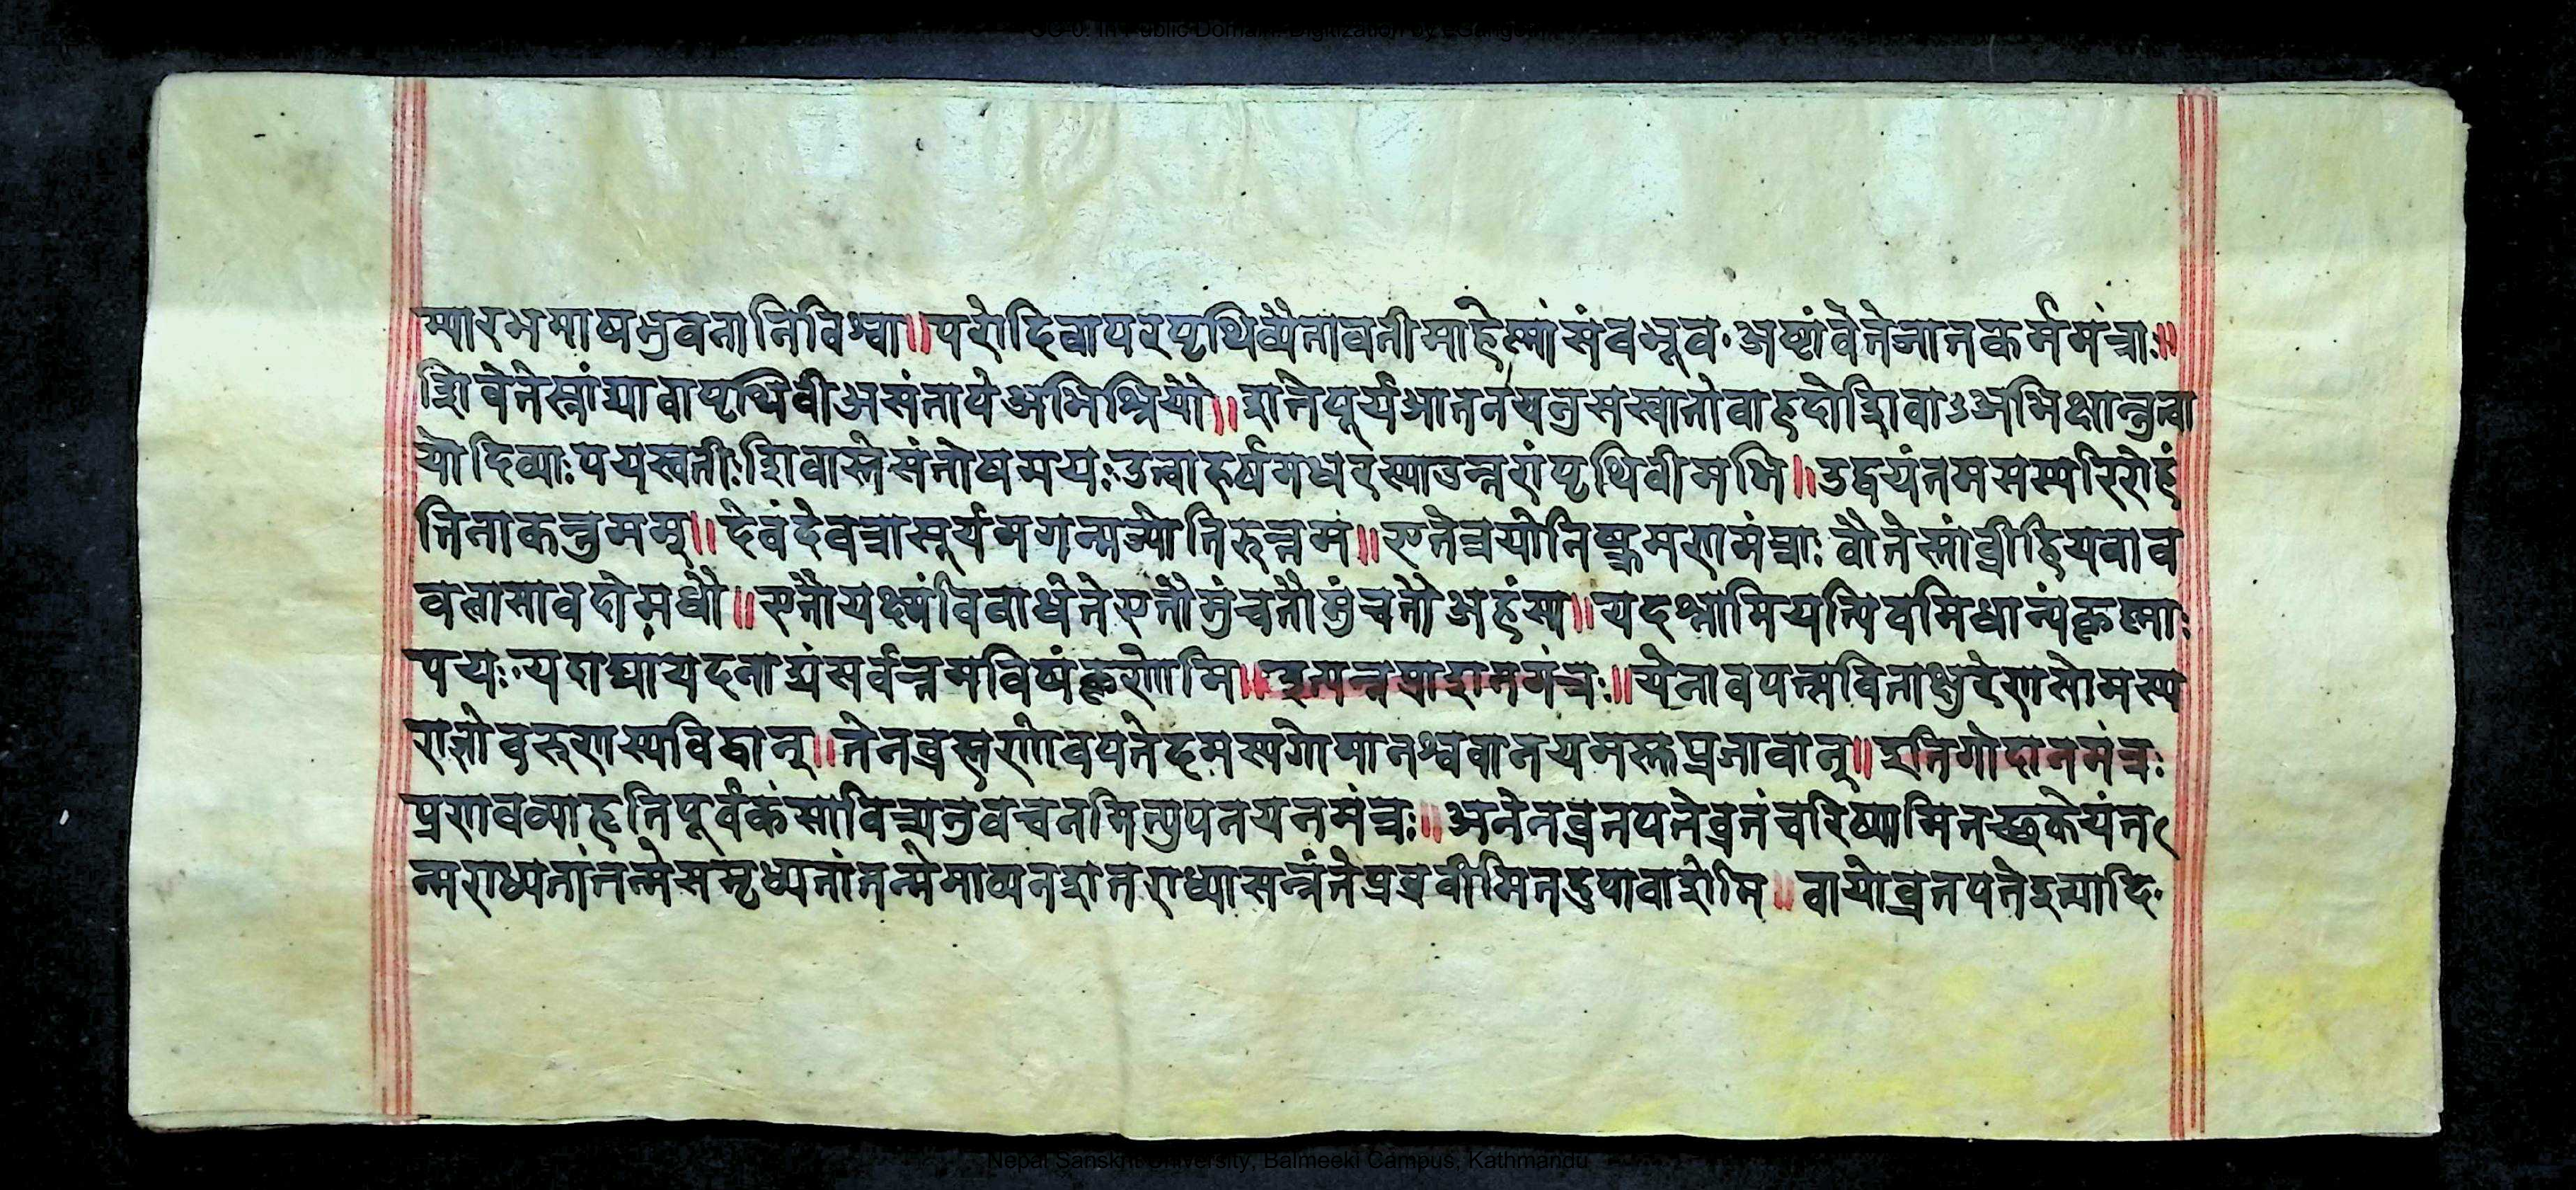 CC-0. In Public Domain. Digitization by eGangotri
म्यारभमाणभुवनानिविश्वा॥परोदिवापरएपृथिव्यैतावतीमाहेम्नासंवभूव॰अष्टांवेतेजातकर्ममंत्राः॥
शिवेतेस्तांद्यावापृथिवीअसंतापेअभिश्रियौ॥शंतेसूर्यआतनयतुसंस्वातोवाहदोशिवाऽअभिक्षान्तुत्वा
योदिव्याःपयस्वतीःशिवास्तेसंतोषमयःउत्वाहर्षमधरस्याउत्तरांपृथिवीमभि॥उद्वयंतमसस्परिरोहं
तिनाकन्तुमम्॥देवंदेवत्रासूर्यमगन्मज्योतिरुत्तमं॥एतेत्रयोनिष्क्रमणमंत्राः वौतेस्तांव्रीहियवाव
वलासावदोमधौ॥एतौयक्ष्मंविवाधेतेएतौमुंचतौमुंचतोअहंस्य॥यदश्नासियत्पिवसिधान्यंकृष्याः
पयः॰यदाद्यायदनाद्यंसर्वन्तमविषंकृणोमि॥इत्यन्नप्राशनमंत्रः॥येनावपत्सविताक्षुरेणसोमस्य
राज्ञोवरुणस्यविद्वान्॥तेनव्रह्मणोवपतेदमस्यगोमानश्ववानयमस्तुप्रजावान्॥इतिगोदानमंत्रः
प्रणवव्याहृतिपूर्वकंसावित्र्यनुवचनमित्युपनयनमंत्रः॥अनेनव्रतपतेव्रतंचरिष्यामितच्छकेयंत
न्मराध्यतांतन्मेसमृध्यतांतन्मेमाव्यनशत्तराध्यासन्तंतेप्रव्रवीमितदुपावाशेमि॥वायोव्रतपतेइत्यादि॰
Nepal Sanskrit University, Balmeeki Campus, Kathmandu